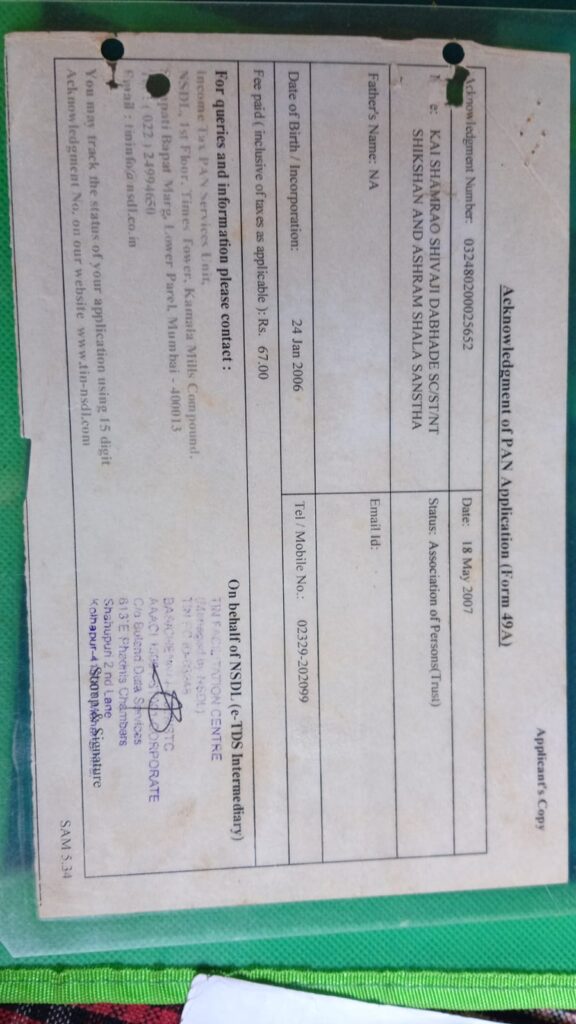 Applicant's Copy
Acknowledgment of PAN Application (Form 49A)
Acknowledgment Number: 032480200025652 Date: 18 May 2007
e: KAI SHAMRAO SHIVAJI DABHADE SC/ST/NT Status: Association of Persons(Trust)
SHIKSHAN AND ASHRAM SHALA SANSTHA
Father's Name: NA Email Id:
Date of Birth / Incorporation: 24 Jan 2006 Tel / Mobile No.: 02329-202099
Fee paid ( inclusive of taxes as applicable ): Rs. 67.00
For queries and information please contact : On behalf of NSDL (e-TDS Intermediary)
Income Tax PAN Services Unit,
NSDL, 1st Floor, Times Tower, Kamala Mills Compound,
Bapat Marg, Lower Parel, Mumbai - 400013
( 022 ) 24994650
Email : tininfo@nsdl.co.in
You may track the status of your application using 15 digit
Acknowledgment No. on our website www.tin-nsdl.com
TIN FACILITATION CENTRE
(Managed by NSDL)
CORPORATE
Services
613 E Phadnis Chambers
Shahupuri 2 nd Lane
Kolhapur-4
Stamp & Signature
SAM 5.34